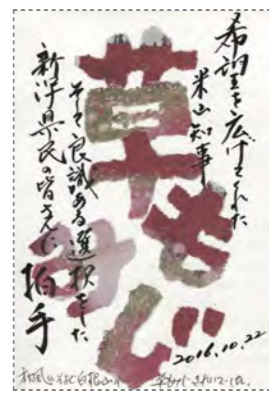 希望を広げてくれた
米山知事
そして良識ある選択をした
新潟県民の皆さんに
拍手
草もみじ
2016.10.22